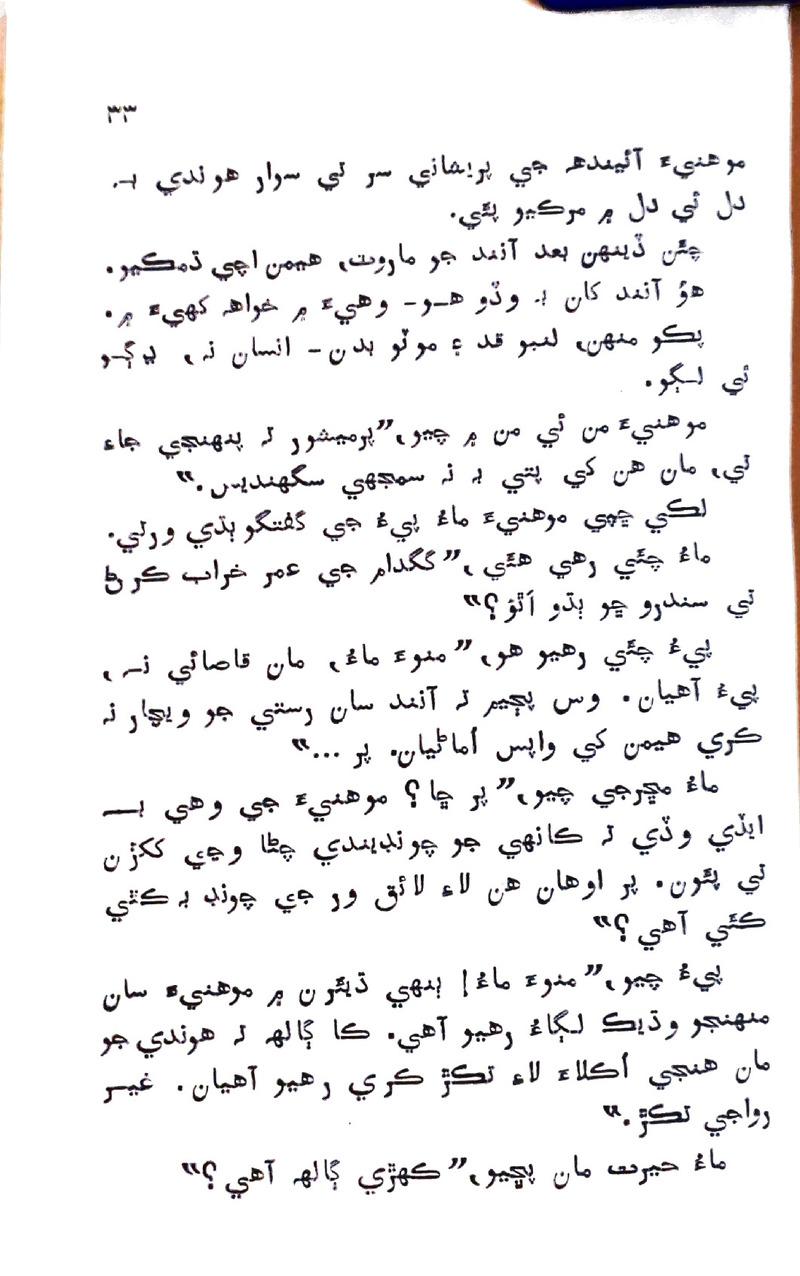 ۳۳
موهنيءَ آئيندهه جي پريشاني سر تي سوار هوندي بہ
دل ئي دل ۾ مرڪيو پئي.
چئن ڏينهن بعد آنند جو ماروٽ، هيمن اچي ڌمڪيو.
هوُ آنند کان بہ وڏو هـو- وهيءَ ۾ خواهہ کهيءَ ۾.
پڪو منهن، لنبو قد ۽ موٽو بدن- انسان نہ، ڍڳـو
ئي لـڳو.
موهنيءَ من ئي من ۾ چيو،”پرميشور تہ پنهنجي جاءِ
تي، مان هن کي پتي بہ نہ سمجهي سگهنديس.“
لڪي ڇپي موهنيءَ ماءُ پيءُ جي گفتگو ٻڌي ورتي.
ماءُ چئي رهي هئي،”ککدام جي عمر خراب ڪرڻ
تي سندرو ڇو ٻڌو اَٿوَ؟“
پيءُ چئي رهيو هو،”منوءَ ماءُ، مان قاصائي نـہ،
پيءُ آهيان. وس پڄيم تہ آنند سان رستي جو ويچار نہ
ڪري هيمن کي واپس اُماڻيان. پر ...“
ماءُ مڇرجي چيو،”پر ڇا؟ موهنيءَ جي وهي بـہ
ايڏي وڏي تہ ڪانهي جو چونڊيندي چڻا وڃي ککڙن
تي پئون. پر اوهان هن لاءِ لائق ور جي چونڊ بہ ڪٿي
ڪئي آهي؟“
پيءُ چيو،”منوءَ ماءُ! ٻنهي ڌيئرن ۾ موهنيءَ سان
منهنجو وڌيڪ لـڳاءُ رهيو آهي. ڪا ڳالهہ تہ هوندي جو
مان هنجي اُڪلاءَ لاءِ تڪڙ ڪري رهيو آهيان. غيـر
رواجي تڪڙ.“
ماءُ حيرت مان پڇيو،”ڪهڙي ڳالهہ آهي؟“